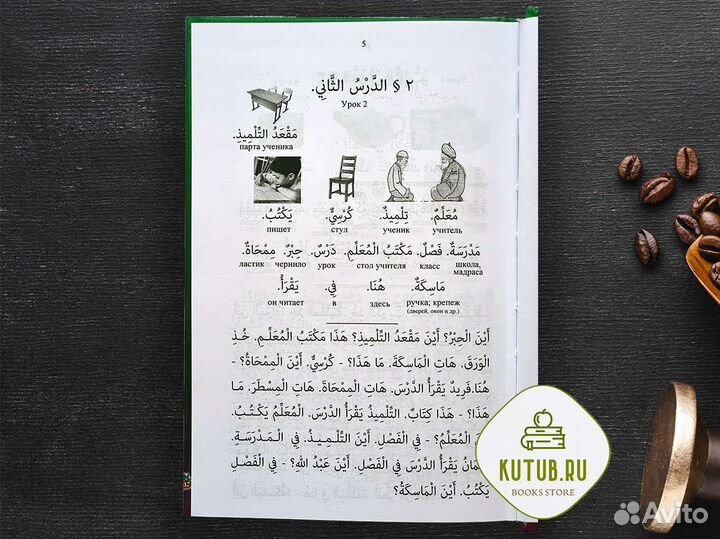 5
§ ٢ الدَّرْسُ الثَّانِي.
Урок 2
مَقْعَدُ التِّلْمِيذِ.
парта ученика
مُعَلِّمٌ. تِلْمِيذٌ. كُرْسِيٌّ. يَكْتُبُ.
пишет стул ученик учитель
مَدْرَسَةٌ. فَصْلٌ. مَكْتَبُ الْمُعَلِّمِ. دَرْسٌ. حِبْرٌ. مِمْحَاةٌ.
ластик чернило урок стол учителя класс школа, мадраса
مَاسِكَةٌ. هُنَا. فِي. يَقْرَأُ.
он читает в здесь ручка; крепеж
(дверей, окон и др.)
أَيْنَ الْحِبْرُ؟ أَيْنَ مَقْعَدُ التِّلْمِيذِ؟ هَذَا مَكْتَبُ الْمُعَلِّمِ. خُذِ
الْوَرَقَ. هَاتِ الْمَاسِكَةَ. مَا هَذَا؟ - كُرْسِيٌّ. أَيْنَ الْمِمْحَاةُ؟ -
هُنَا. فَرِيدٌ يَقْرَأُ الدَّرْسَ. هَاتِ الْمِمْحَاةَ. هَاتِ الْمِسْطَرَ. مَا
هَذَا؟ - هَذَا كِتَابٌ. التِّلْمِيذُ يَقْرَأُ الدَّرْسَ. الْمُعَلِّمُ يَكْتُبُ.
الْمُعَلِّمُ؟ - فِي الْفَصْلِ. أَيْنَ التِّلْمِيذُ؟ - فِي الْمَدْرَسَةِ.
يَقْرَأُ الدَّرْسَ فِي الْفَصْلِ. أَيْنَ عَبْدُ اللهِ؟ - فِي الْفَصْلِ
يَكْتُبُ. أَيْنَ الْمَاسِكَةُ؟
KUTUB.RU
BOOKS STORE
Avito